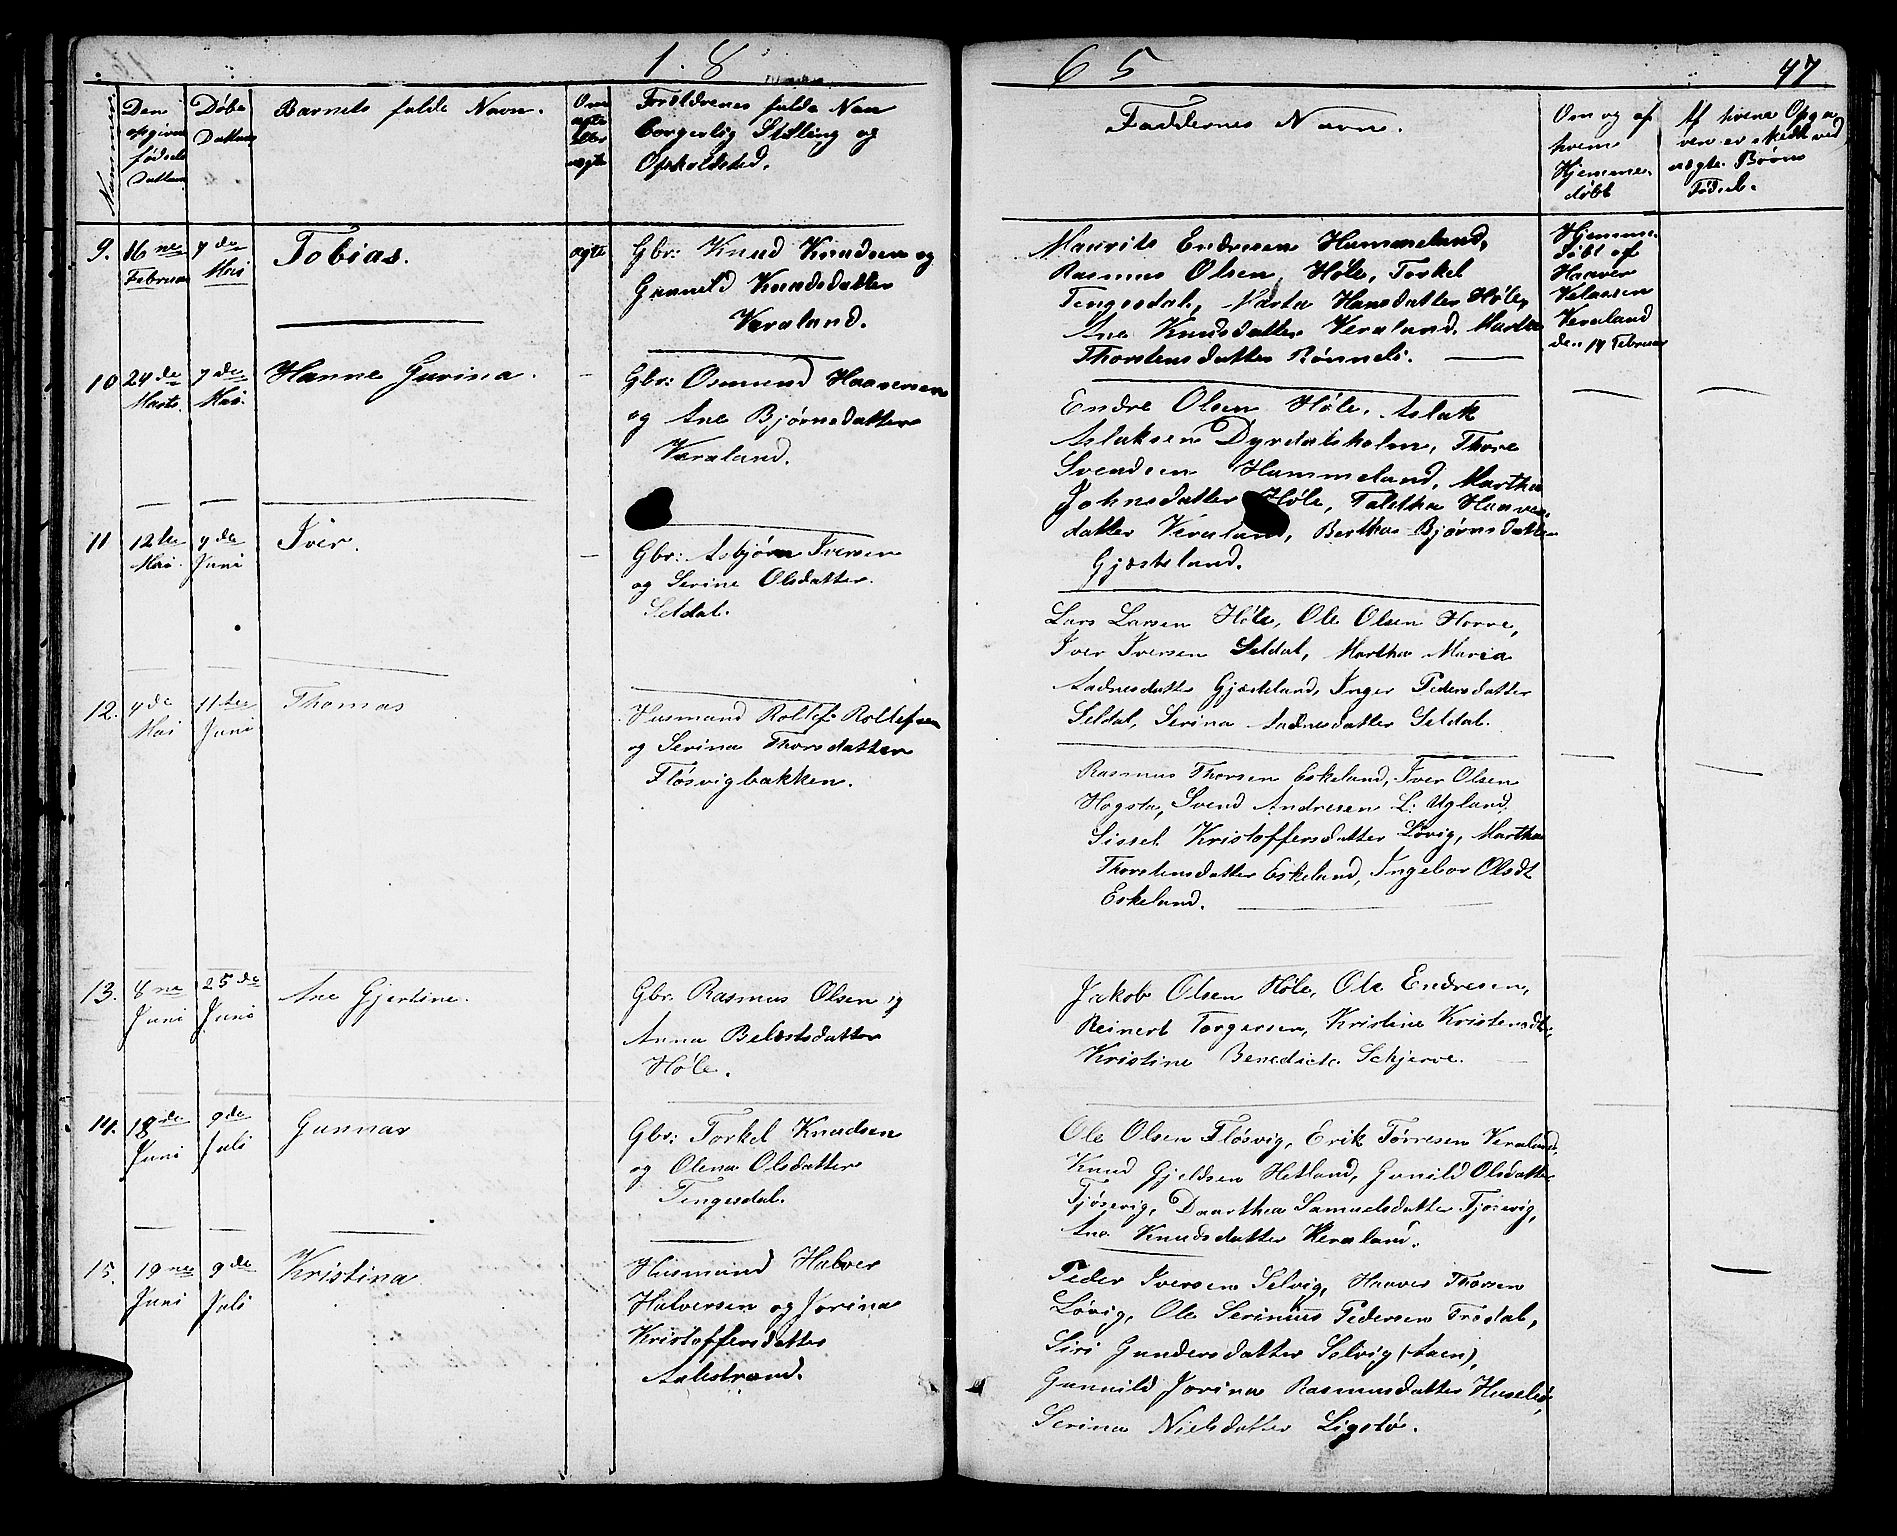 1. 8
6 5
47
Nummer
Den
opgivne
fødsels
Datum
Døbe
Datum
Barnets fulde Navn.
Om
ægte
eller
uægte
Forældrenes fulde Navn
borgerlig Stilling og
Opholdsted.
Faddernes Navne.
Om og af
hvem
Hjemme-
døbt
Af hvem Opga
ven er skedt ved
uægte Børns
Fødsel.
9.
16ne
Februar
7de
Mai
Tobias.
ægte
Gbr: Knud Knudsen og
Gunnild Knudsdatter
Veraland.
Maurits Endresen Hummeland,
Rasmus Olsen Høle, Torkel
Tengesdal, Marta Hansdatter Høle,
Ane Knudsdatter Veraland, Marta
Thorstensdatter Rønneli.
Hjemme-
døbt af
Haaver
Velassen
Veraland
den 17 Februar
10
24de
Marts.
7de
Mai.
Hanne Gurina.
Gbr: Osmund Haaversen
og Ane Bjørnsdatter
Veraland.
Endre Olsen Høle, Aslak
Aslaksen Dyrdalsholm, Thore
Svendsen Hummeland, Martha
Johnsdatter Høle, Talitha Haaver
datter Veraland, Bertha Bjørnsdatter
Gjæsteland.
11
12te
Mai.
7de
Juni
Iver.
Gbr: Asbjørn Iversen
og Serine Olsdatter.
Seldal.
Lars Larsen Høle, Ole Olsen Horve,
Iver Iversen Seldal, Martha Maria
Aadnesdatter Gjæsteland, Inger Pedersdatter
Seldal, Serina Aadnesdatter Seldal.
12.
7de
Mai
11te
Juni
Thomas
Husmand Roltef Roltefsen
og Serina Thorsdatter
Fløsvigbakken.
Rasmus Thorsen Eskeland, Iver Olsen
Hogsta, Svend Andresen L: Ugland.
Sissel Kristoffersdatter Løvig, Martha
Thorstensdatter Eskeland, Ingebor Olsdt
Eskeland.
13.
8ne
Juni
25de
Juni
Ane Gjertine.
Gbr. Rasmus Olsen og
Anna Belestsdatter
Høle.
Jakob Olsen Høle, Ole Endresen,
Reinert Torgersen, Kristine Kristensdt,
Kristine Benedicte Schjerve.
14.
18de
Juni
9de
Juli
Gunnar
Gbr: Torkel Knudsen
og Olena Olsdatter
Tengesdal.
Ole Olsen Fløsvig, Erik Tørresen Veraland,
Knud Gjeldsen Hetland, Gunild Olsdatter
Tjøsevig, Daarthea Samuelsdatter Tjosevig,
Ane Knudsdatter Veraland.
15.
19ne
Juni
9de
Juli
Kristina
Husmand Halver
Halversen og Jorina
Kristoffersdatter
Aalestrand.
Peder Iversen Selvig, Haaver Thorsen
Løvig, Ole Serinius Pedersen Frødal,
Siri Gundersdatter Selvig (Aaen),
Gunnild Jorina Rasmusdatter Husebø,
Serina Nielsdatter Ligstø.